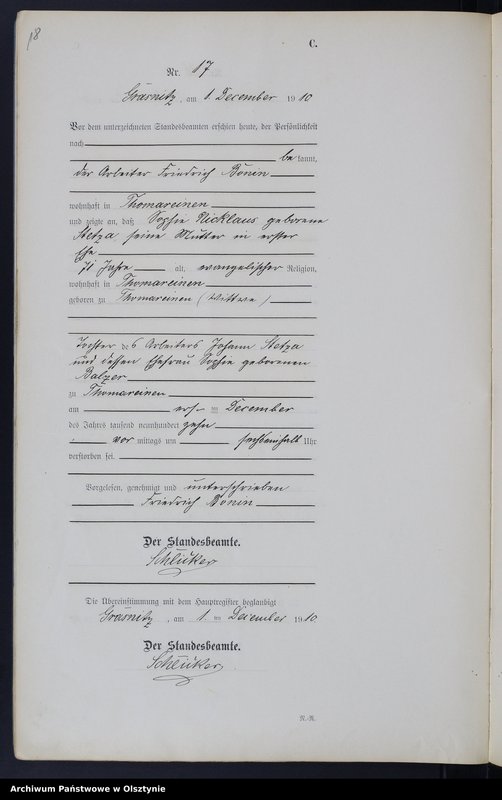 18
C.
Nr. 17
Grasnitz, am 1. December 1910
Vor dem unterzeichneten Standesbeamten erschien heute, der Persönlichkeit
nach
bekannt,
der Arbeiter Friedrich Bonin
wohnhaft in Thomareinen
und zeigte an, daß Sophie Nicklaus geborene
Stetza seine Mutter in erster
Ehe
71 Jahre alt, evangelischer Religion,
wohnhaft in Thomareinen
geboren zu Thomareinen (Wittwe)
Tochter des Arbeiters Johann Stetza
und dessen Ehefrau Sophie geborenen
Balzer
zu Thomareinen
am ersten December
des Jahres tausend neunhundert zehn
vor mittags um sechseinhalb Uhr
verstorben sei.
Vorgelesen, genehmigt und unterschrieben
Friedrich Bonin
Der Standesbeamte.
Schlicker
Die Übereinstimmung mit dem Hauptregister beglaubigt
Grasnitz, am 1. ten December 1910
Der Standesbeamte.
Schlicker
N.-R.
Archiwum Państwowe w Olsztynie